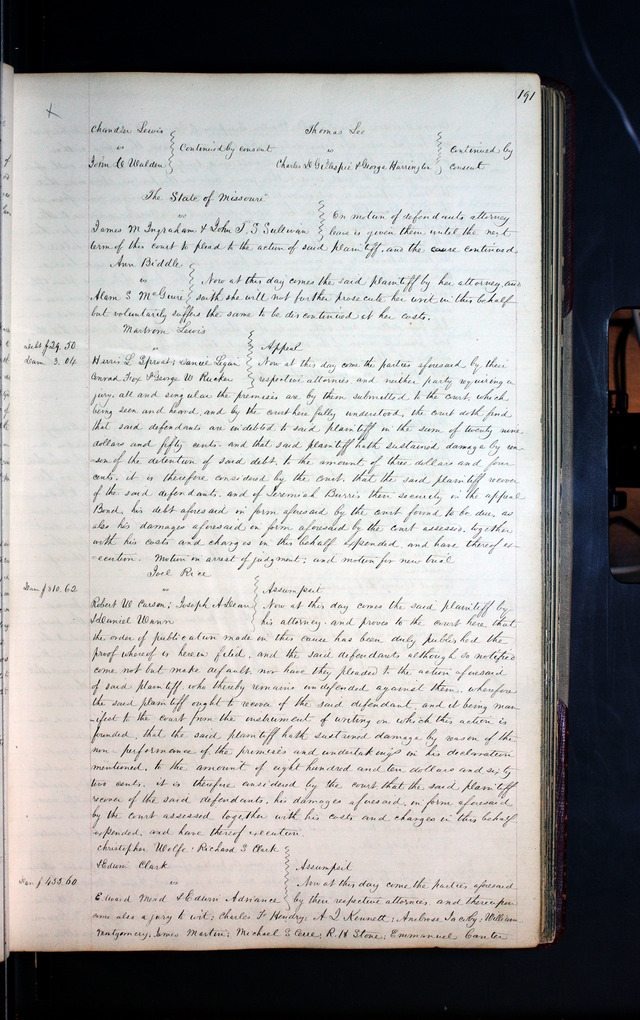 191
Chandler Lewis
vs Continued by consent
John C Walden
Thomas Lee
vs Continued by
Charles D Gillespie & George Harrington consent
The State of Missouri
vs On motion of defendants attorney
James M Ingraham & John T. S Sullivan leave is given them until the next
term of this court to plead to the action of said plaintiff, and the cause continued
Ann Biddle
vs Now at this day comes the said plaintiff by her attorney, and
Adam S McGuire saith she will not further prosecute her writ in this behalf
but voluntarily suffers the same to be discontinued at her costs.
Lewis
debt $29.50 vs Appeal
Dam 3.04 Harris L Sproat; Daniel Logan Now at this day come the parties aforesaid by their
Conrad Fox & George W Rucker respective attornies, and neither party requiring a
jury, all and singular the premises are by them submitted to the court, which
being seen and heard, and by the court here fully understood, the court doth find
that said defendants are indebted to said plaintiff in the sum of twenty nine
dollars and fifty cents. and that said plaintiff hath sustained damage by rea-
-son of the detention of said debt, to the amount of three dollars and four
cents. it is therefore considered by the court, that the said plaintiff recover
of the said defendants, and of Jeremiah Burris their security in the appeal
Bond, his debt aforesaid in form aforesaid by the court found to be due, as
also his damages aforesaid in form aforesaid by the court assessed, together
with his costs and charges in this behalf expended, and have thereof ex-
-ecution. Motion in arrest of judgment; and motion for new trial
Joel Rice
Dam $810.62 vs Assumpsit
Robert W Carson; Joseph A Dean Now at this day comes the said plaintiff by
& Daniel Wann his attorney, and proves to the court here that
the order of publication made in this cause has been duly published the
proof whereof is herein filed, and the said defendants although so notified
come not but make default, nor have they pleaded to the action aforesaid
of said plaintiff, who thereby remains undefended against them, wherefore
the said plaintiff ought to recover of the said defendant, and it being man-
-ifest to the court from the instrument of writing on which this action is
founded, that the said plaintiff hath sustained damage by reason of the
non performance of the promises and undertakings in his declaration
mentioned, to the amount of eight hundred and ten dollars and sixty
two cents. it is therefore considered by the court that the said plaintiff
recover of the said defendants, his damages aforesaid, in form aforesaid
by the court assessed together with his costs and charges in this behalf
expended, and have thereof execution.
Christopher Wolfe. Richard S Clark
& Edwin Clark Assumpsit
Dam $455.60 vs Now at this day come the parties aforesaid
Edward Mead & Edwin Adriance by their respective attornies, and thereupon
came also a jury to wit; Charles F Hendry; A. J Kennett; Ambrose Jacoby; William
Montgomery; James Martin; Michael S Cerre; R. H Stone; Emmanuel Canter